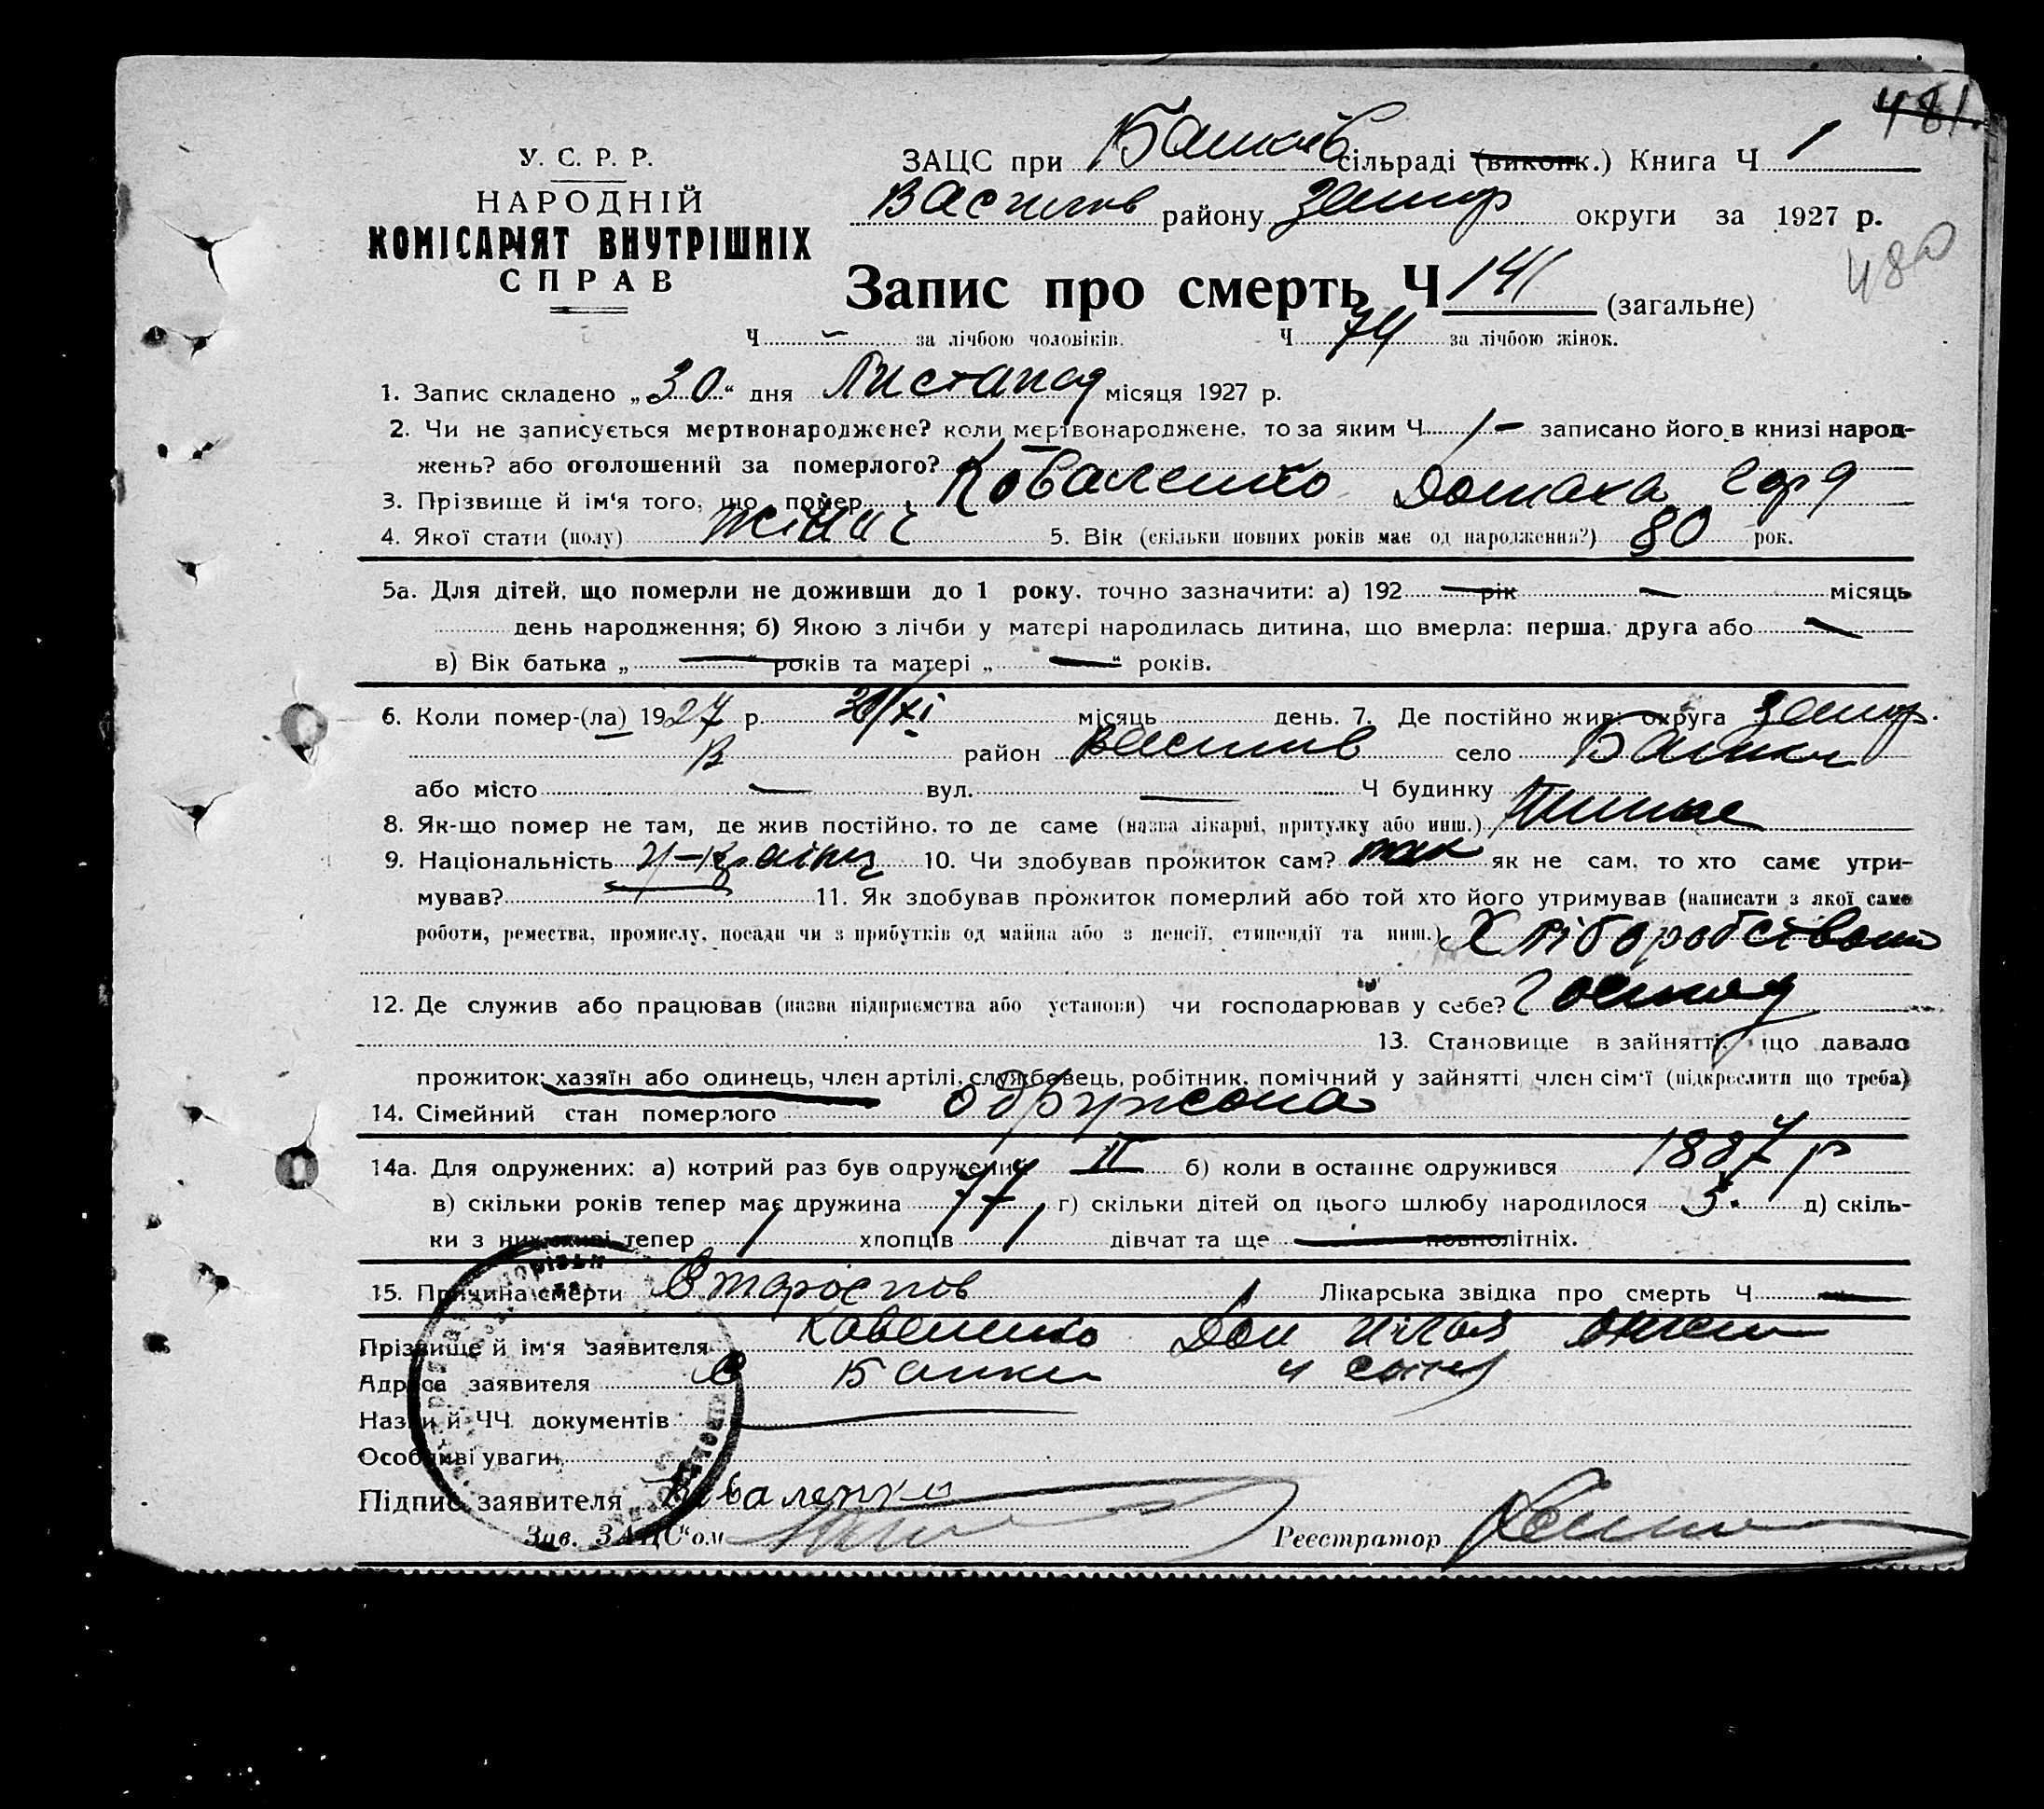 481.
У. С. Р. Р.
НАРОДНІЙ
КОМІСАРІЯТ ВНУТРІШНІХ
СПРАВ
ЗАЦС при сільраді (виконк.) Книга Ч 1
Василів району Запор округи за 1927 р.
480
Запис про смерть Ч 141 (загальне)
Ч – за лічбою чоловіків. Ч 74 за лічбою жінок.
1. Запис складено „30“ дня Листопад місяця 1927 р.
2. Чи не записується мертвонароджене? коли мертвонароджене, то за яким Ч записано його в книзі народ-
жень? або оголошений за померлого?
3. Прізвище й ім'я того, що помер Коваленко Домаха Горд
4. Якої стати (полу) жіноч 5. Вік (скільки повних років має од народження?) 80 рок.
5а. Для дітей, що померли не доживши до 1 року, точно зазначити: а) 192 — рік — місяць
день народження; б) Якою з лічби у матері народилась дитина, що вмерла: перша, друга або —
в) Вік батька „ — “ років та матері „ — “ років.
6. Коли помер-(ла) 1927 р. місяць день. 7. Де постійно жив: округа Запор.
В район Василів село Балки
або місто — вул. — Ч будинку
8. Як-що помер не там, де жив постійно, то де саме (назва лікарні, притулку або инш.)
9. Національність 10. Чи здобував прожиток сам? так як не сам, то хто саме утри-
мував? 11. Як здобував прожиток померлий або той хто його утримував (написати з якої саме
роботи, ремества, промислу, посади чи з прибутків од майна або з пенсії, стипендії та инш.) Хліборобством
12. Де служив або працював (назва підприємства або установи) чи господарював у себе? Господ
13. Становище в зайнятті, що давало
прожиток: хазяїн або одинець, член артілі, службовець, робітник, помічний у зайнятті член сім'ї (підкреслити що треба)
14. Сімейний стан померлого одружона
14а. Для одружених: а) котрий раз був одружений II б) коли в останнє одружився 1887 р
в) скільки років тепер має дружина 77 г) скільки дітей од цього шлюбу народилося 3. д) скіль-
ки з них живі тепер 1 хлопців 1 дівчат та ще — повнолітніх.
15. Причина смерти Лікарська звідка про смерть Ч —
Прізвище й ім'я заявителя Коваленко
Адреса заявителя с Балки
Назви й ЧЧ документів
Особливі уваги
Підпис заявителя Коваленко
Зав. ЗАЦС'ом Реєстратор